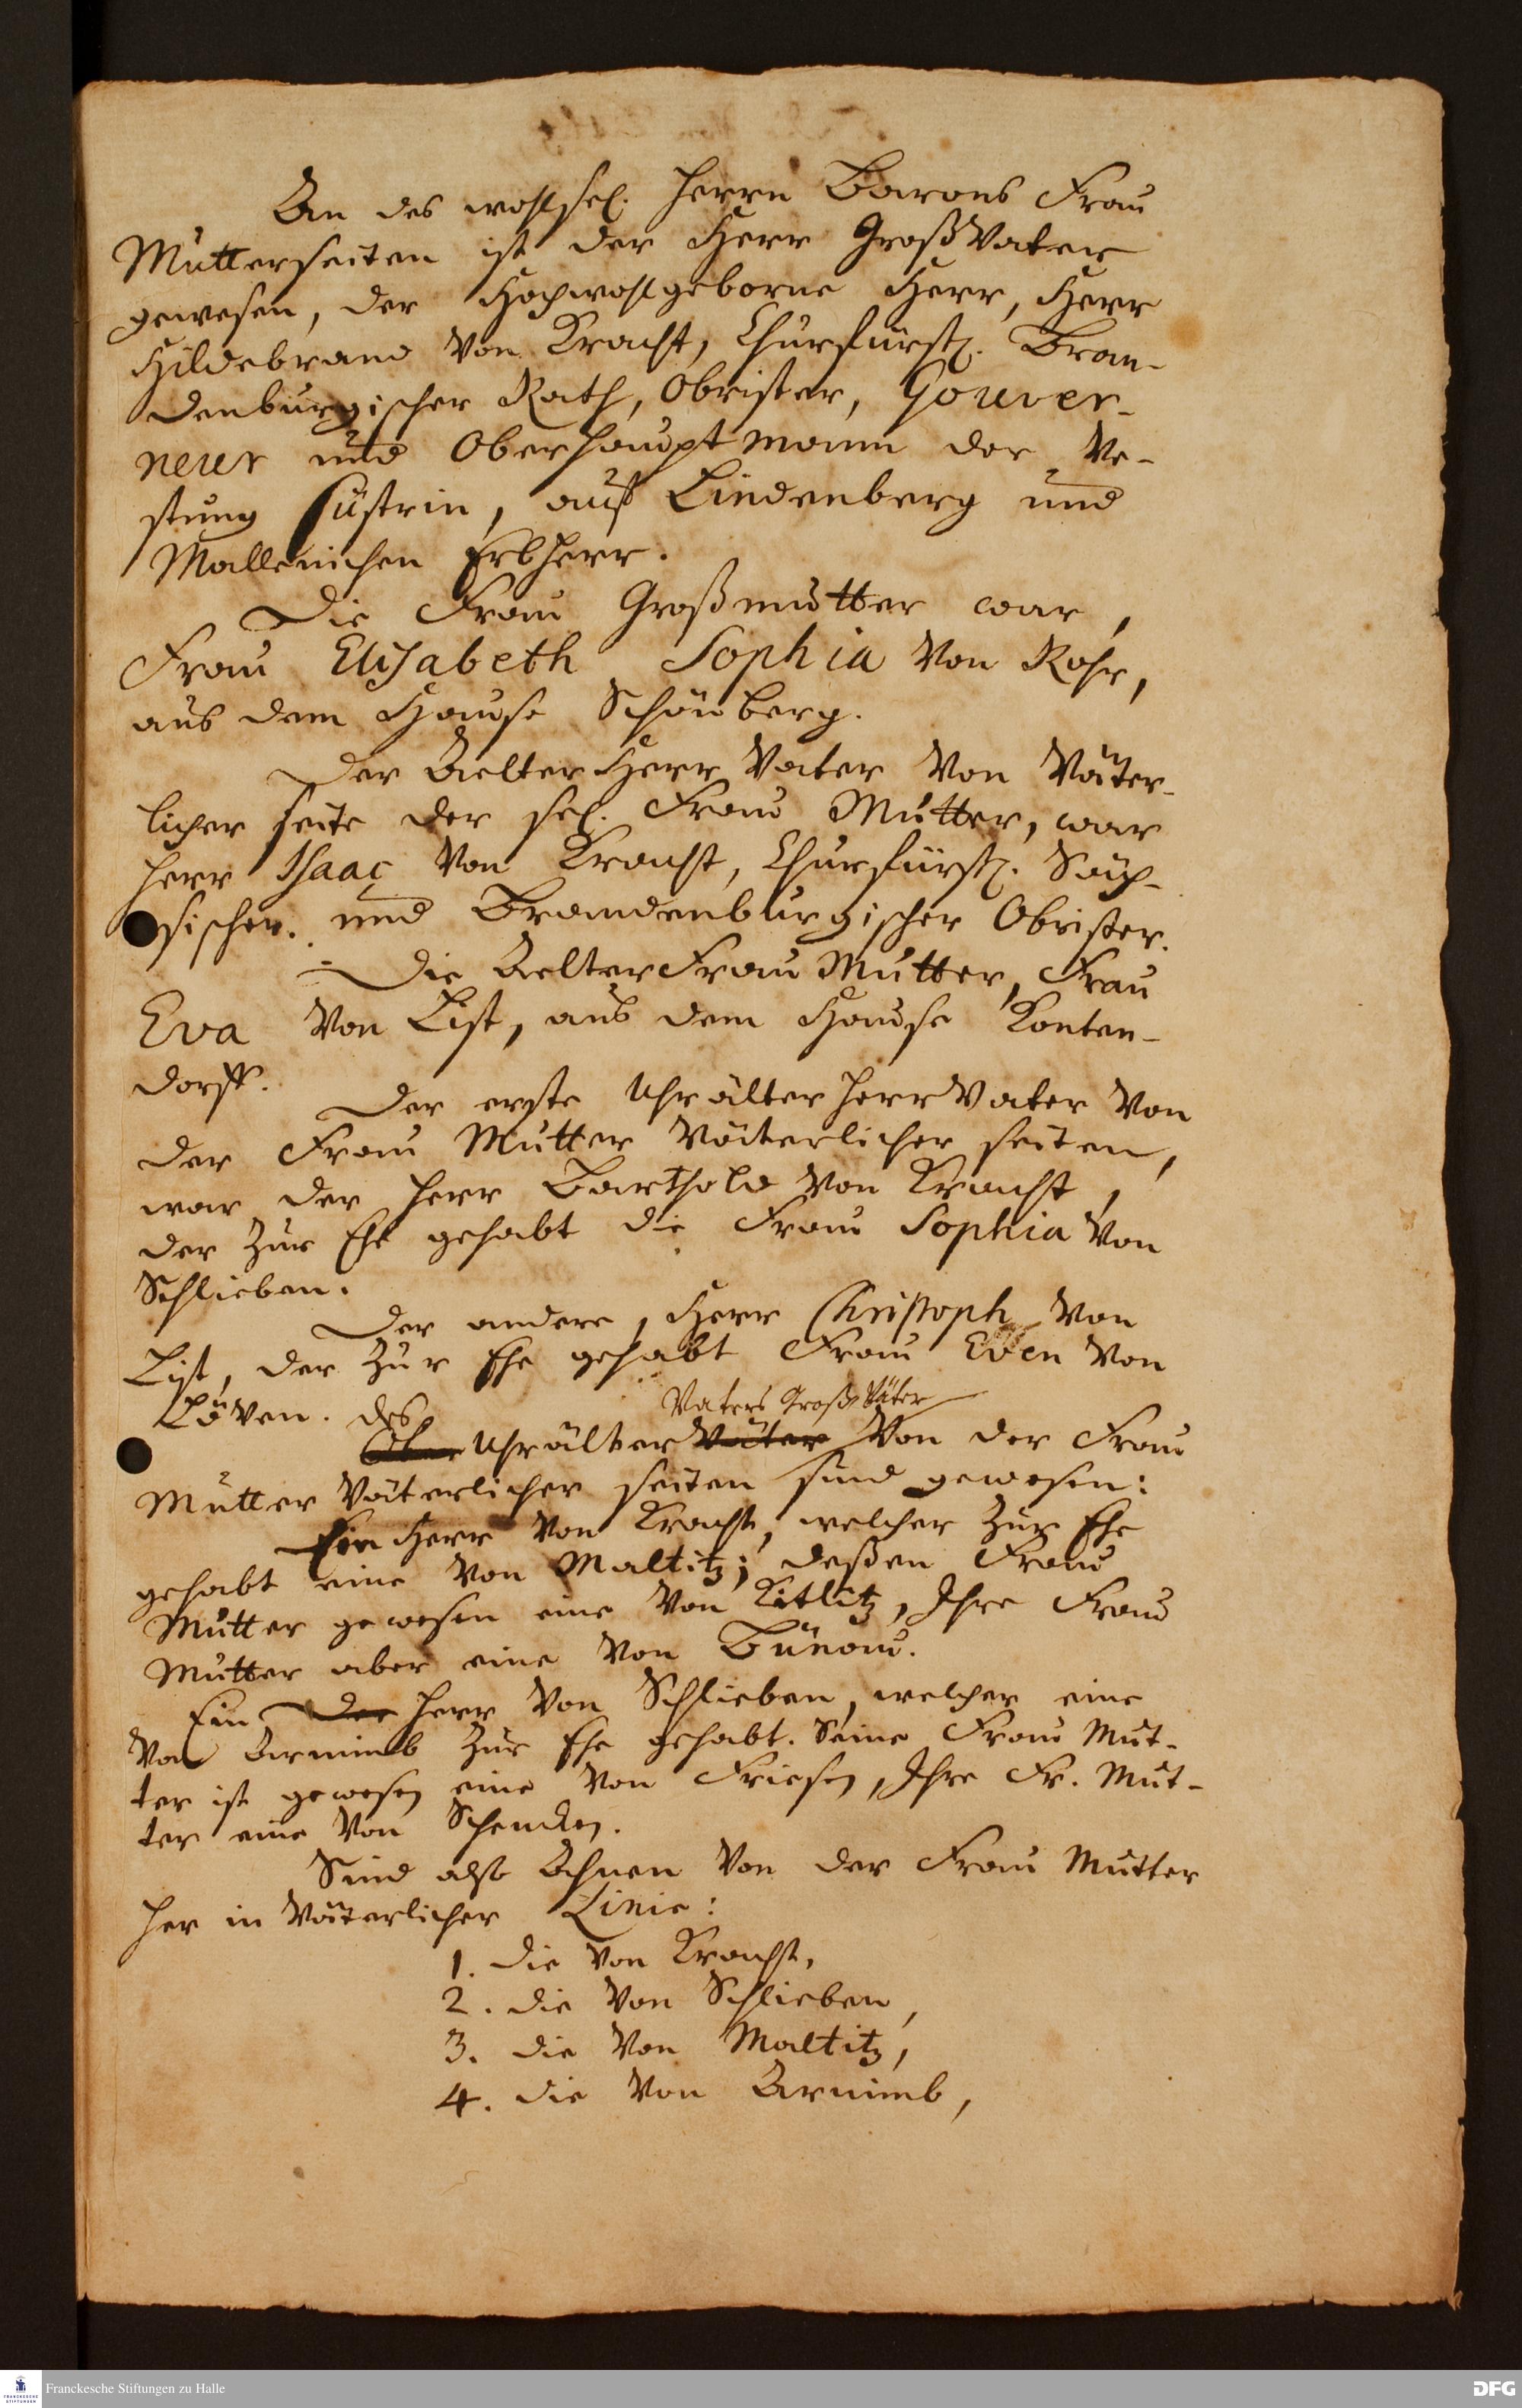 An des wohlsel. Herrn Barons Frau
Mutterseiten ist der Herr GroßVater
gewesen, der Hochwohlgeborne Herr, Herr
Hildebrand von Kracht, Churfürstl. Bran-
denburgischer Rath, Obrister, Gouver-
neur und Oberhauptmann der Ve-
stung Cüstrin, auf Lindenberg und
Mallenichen Erbherr.
Die Frau Großmutter war,
Frau Elisabeth Sophia von Rohr,
aus dem Hause Schönberg.
Der Aelter Herr Vater von Väter-
licher seite der sel. Frau Mutter, war
Herr Isaac von Kracht, Churfürstl. Säch-
sischer. und Brandenburgischer Obrister.
Die Aelter Frau Mutter, Frau
Eva von List, aus dem Hause Konten-
dorff.
Der erste Uhrälter Herr Vater von
der Frau Mutter Väterlicher seiten,
war der Herr Barthold von Kracht,
der zur Ehe gehabt die Frau Sophia von
Schlieben.
Der andere, Herr Christoph von
List, der zur Ehe gehabt Frau Even von
Löven. des
Vaters Groß Väter
Uhrälter Väter von der Frau
Mutter Väterlicher seiten sind gewesen:
Ein Herr von Kracht, welcher zur Ehe
gehabt eine von Maltitz; deßen Frau
Mutter gewesen eine von Kitlitz, Ihre Frau
Mutter aber eine von Bünau.
Ein Der Herr von Schlieben, welcher eine
von Arnimb zur Ehe gehabt. Seine Frau Mut-
ter ist gewesen eine von Friesen, Ihre Fr. Mut-
ter eine von Schencken.
Sind also Ahnen von der Frau Mutter
her in Väterlicher Linie:
1. die von Kracht,
2. die von Schlieben,
3. die von Maltitz,
4. die von Arnimb,
Franckesche Stiftungen zu Halle
DFG